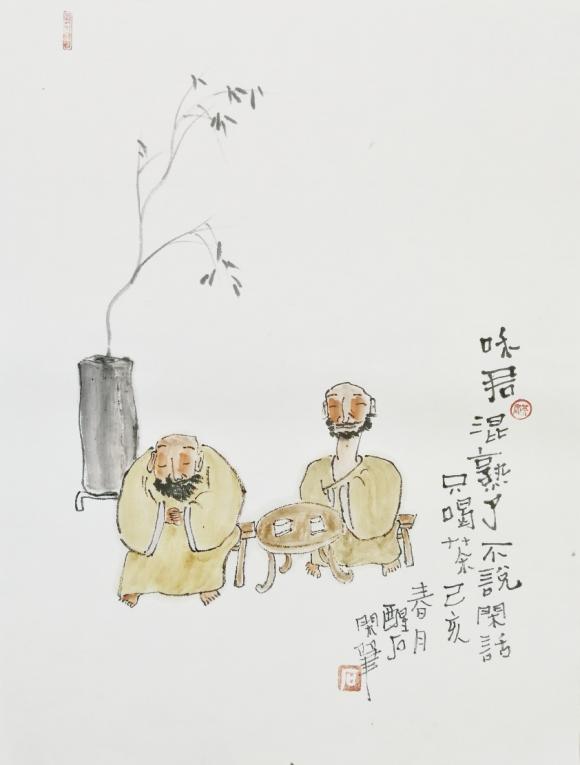 咊君混熟了不說閑話
只喝茶己亥
春月
醒石
閑筆